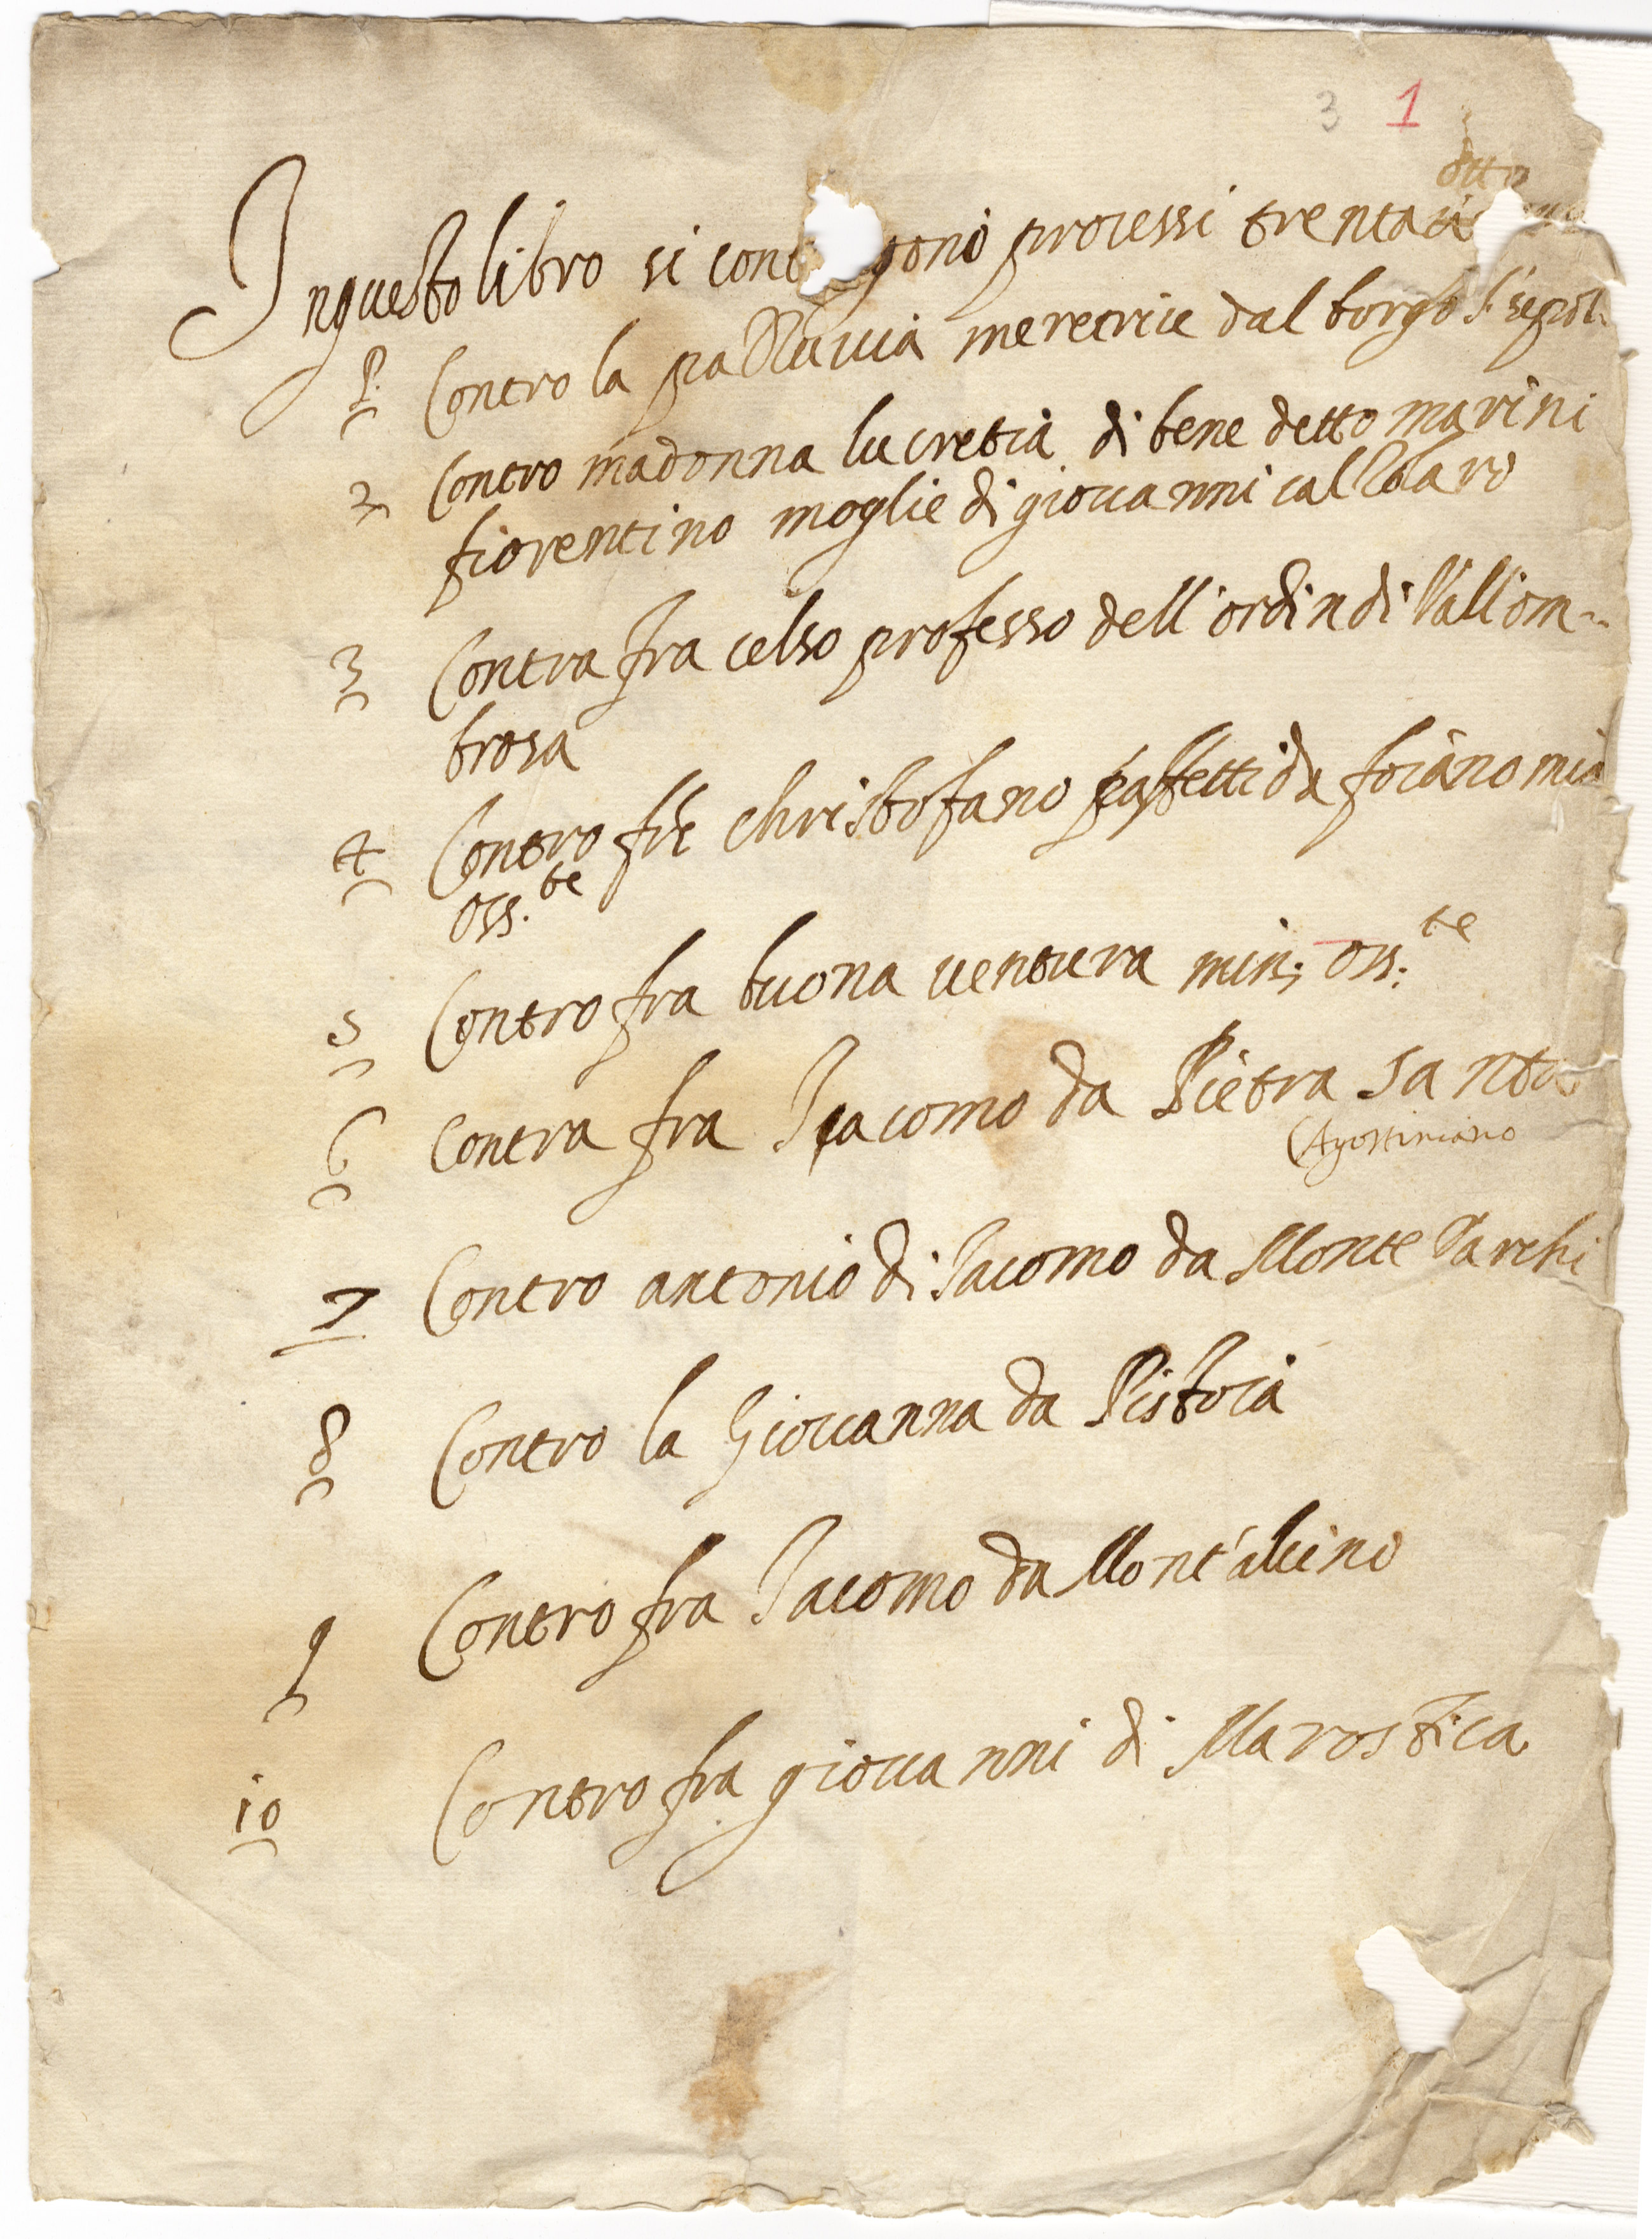 3 1
otto
In questo libro si cont gono processi trenta
1. Contro la meretrice dal borgo S. sepol.
2 Contro madonna lucretia di bene detto marini
fiorentino moglie di giovanni calzolaro
3 Contra fra celso professo dell'ordin di Vallom-
brosa
4 Contro fra christofano da foiano min
oss.te
5 Contro fra buona ventura min; oss.te
6 Contra fra Jacomo da Pietra santa
Agostiniano
7 Contro antonio di Jacomo da Monte Varchi
8 Contro la Giovanna da Pistoia
9 Contro fra Jacomo da Mont'alcino
10 Contro fra giovanni di Marostica